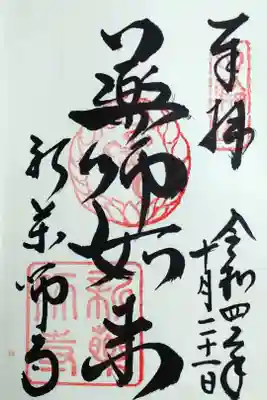 奉拝
令和四年
十月二十一日
薬師如来
新薬師寺